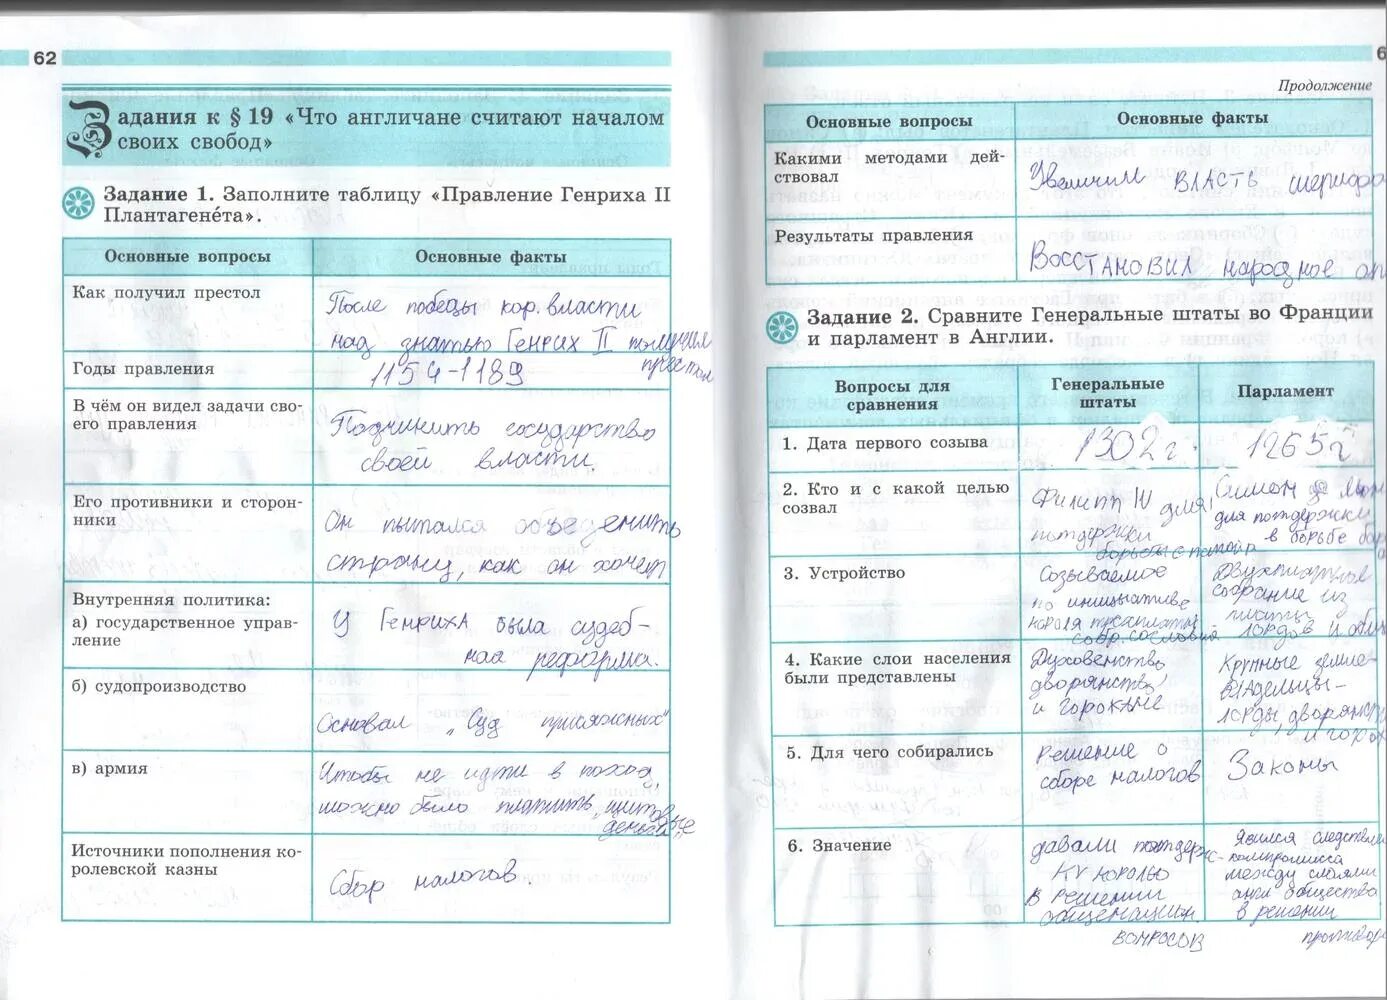 62
Задания к § 19 «Что англичане считают началом
своих свобод»
Задание 1. Заполните таблицу «Правление Генриха II
Плантагене́та».
Основные вопросы
Основные факты
Как получил престол
После победы кор. власти
над знатью Генрих II получил
престол
Годы правления
1154-1189
В чём он видел задачи сво-
его правления
Подчинить государство
своей власти.
Его противники и сторон-
ники
Он пытался объеденить
страну, как он хочет
Внутренняя политика:
а) государственное управ-
ление
У Генриха была судеб-
ная реформа.
б) судопроизводство
Основал „Суд присяжных"
в) армия
Чтобы не идти в поход,
можно было платить „щитовые
деньги"
Источники пополнения ко-
ролевской казны
Сбор налогов.
6
Продолжение
Основные вопросы
Основные факты
Какими методами дей-
ствовал
Увеличил власть шерифа
Результаты правления
Восстановил народное оп
Задание 2. Сравните Генеральные штаты во Франции
и парламент в Англии.
Вопросы для
сравнения
Генеральные
штаты
Парламент
1. Дата первого созыва
1302 г.
1265 г
2. Кто и с какой целью
созвал
Филипп IV для
поддержки
борьбы с папой
Симон де Мон
для поддержки
в борьбе
3. Устройство
Созываемое
по инициативе
короля
собр. сословий
собрание из
палаты
лордов и общ
4. Какие слои населения
были представлены
Духовенство
дворянство
и горожане
Крупные земле-
владельцы-
лорды, дворянст
и горож
5. Для чего собирались
Решение о
сборе налогов
Законы
6. Значение
давали поддерж-
ку королю
в решении
общенацион.
вопросов
явился следствием
компромисса
между слоями
англ общества
в решении
противоре